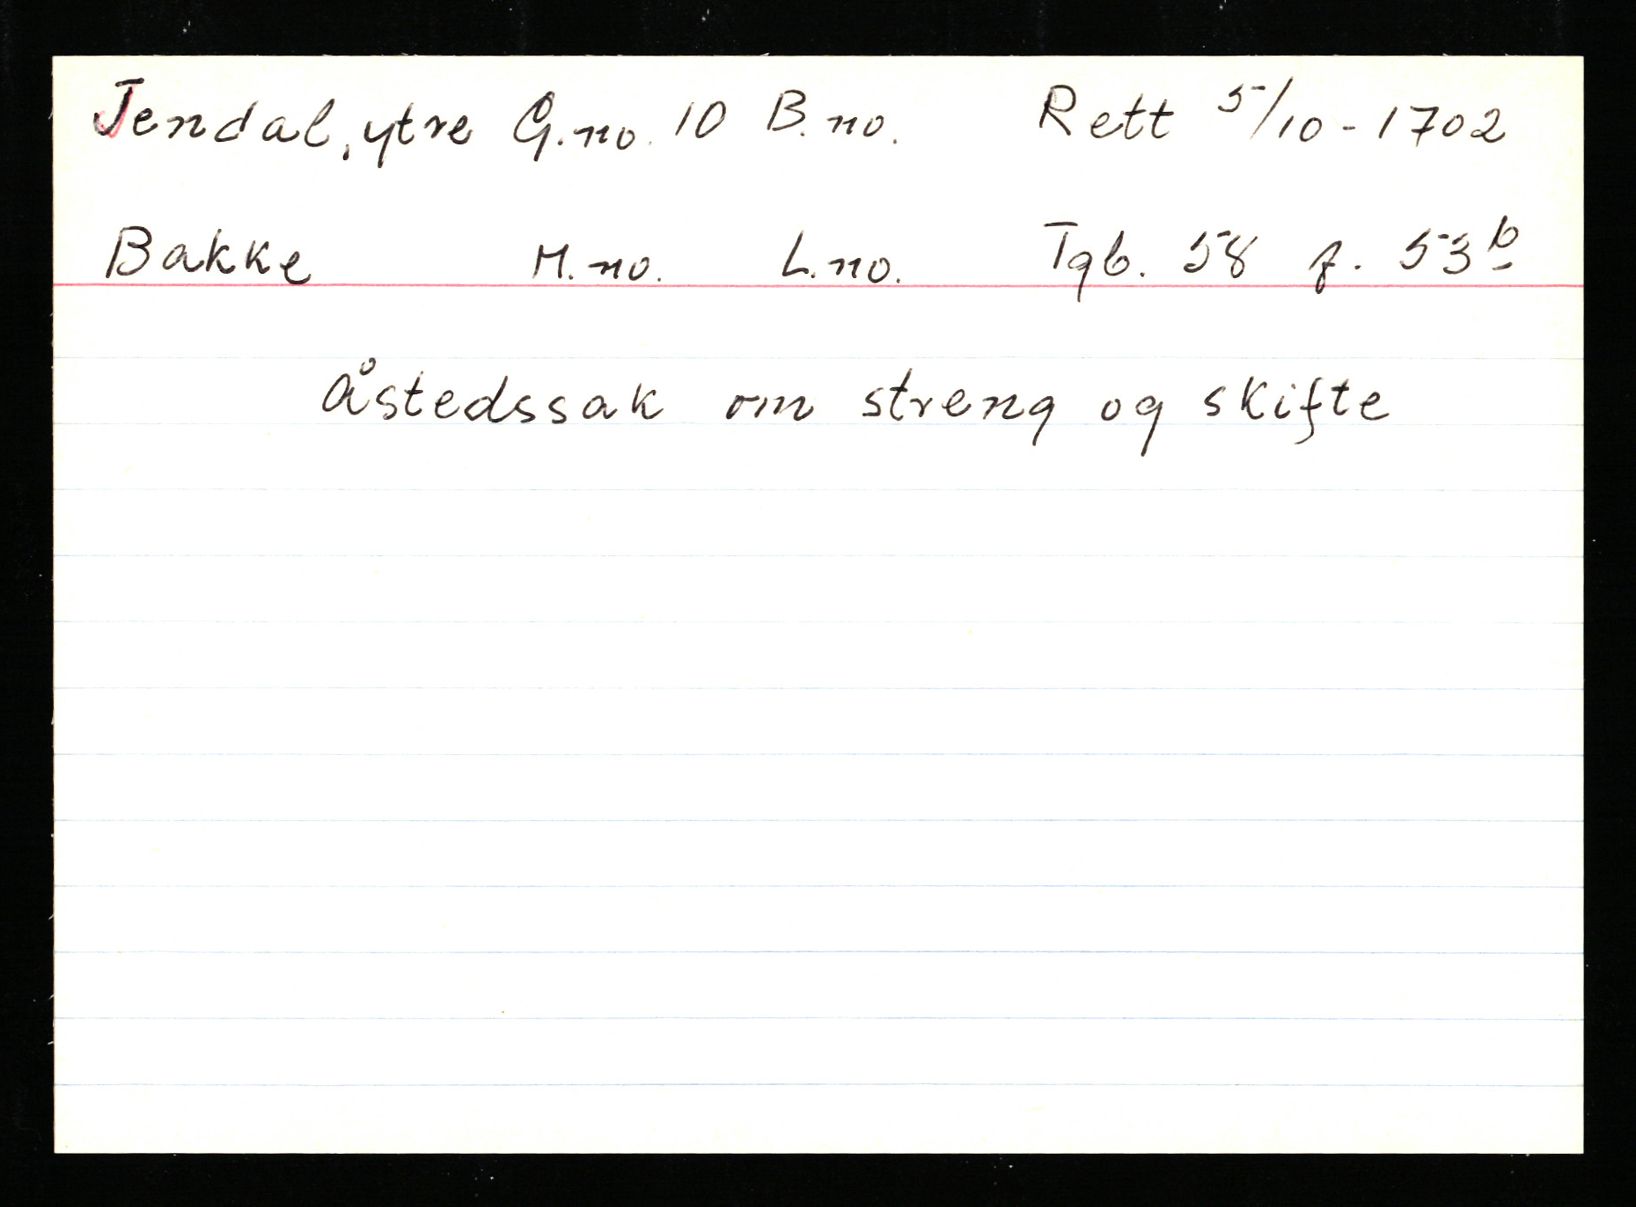 Jendal, ytre G.no. 10 B.no. Rett 5/10-1702
Bakke M.no. L.no. Tgb. 58 f. 53b
Åstedssak om streng og skifte